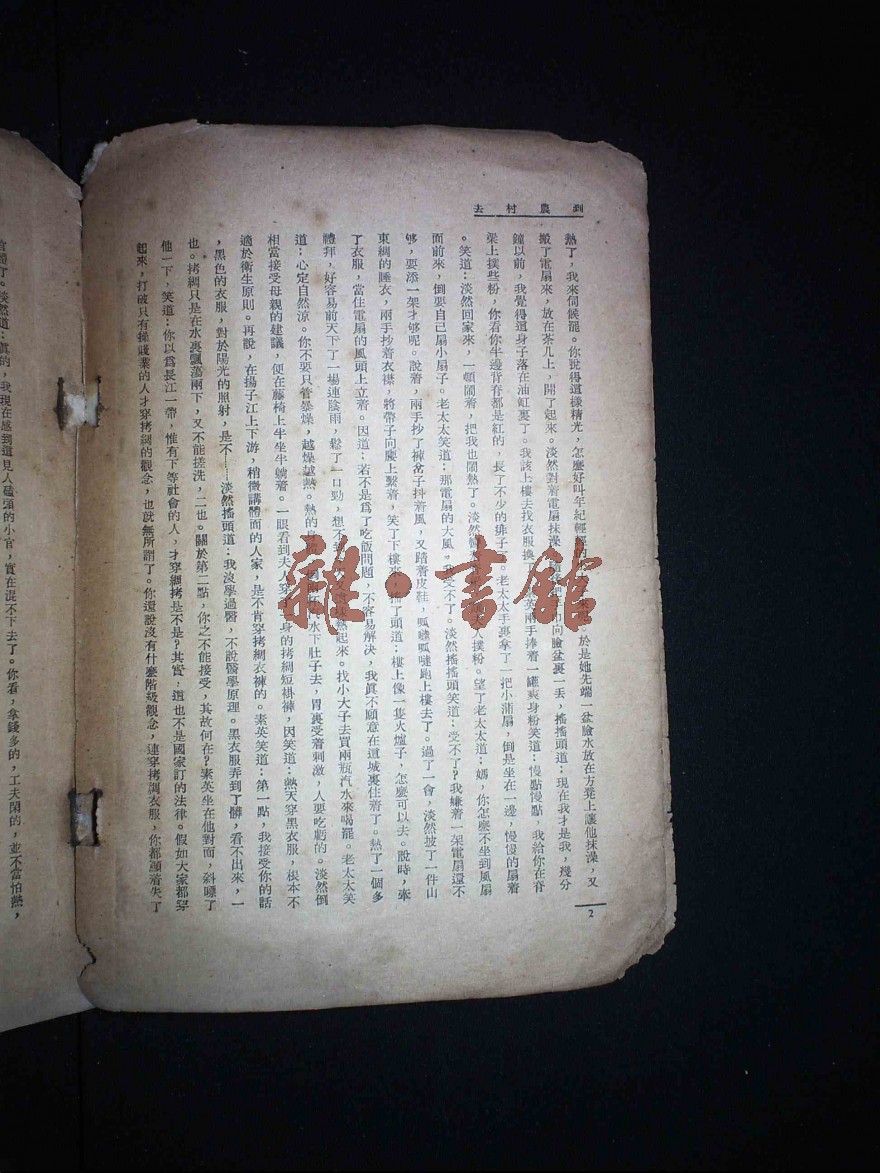 到農村去
熱了，我來伺候罷。你說得這樣精光，怎麼好叫年紀輕輕的 於是她先端一盆臉水放在方凳上讓他抹澡，又
搬了電扇來，放在茶几上，開了起來。淡然對着電扇抹澡， 向臉盆裏一丟，搖搖頭道：現在我才是我，幾分
鐘以前，我覺得這身子落在油缸裏了。我該上樓去找衣服換了 英兩手捧着一罐爽身粉笑道：慢點慢點，我給你在脊
梁上撲些粉，你看你半邊背脊都是紅的，長了不少的痱子 老太太手裏拿了一把小蒲扇，倒是坐在一邊，慢慢的扇着
。笑道：淡然回家來，一頓鬧着，把我也鬧熱了。淡然 人撲粉。望了老太太道：媽，你怎麼不坐到風扇
面前來，倒要自己扇小扇子。老太太笑道：那電扇的大風， 受不了。淡然搖搖頭笑道：受不了？我嫌着一架電扇還不
够，要添一架才够呢。說着，兩手抄了褲岔子抖着風，又踏著皮鞋，呱噠呱噠跑上樓去了。過了一會，淡然披了一件山
東綢的睡衣，兩手抄着衣襟，將帶子向腰上繫着，笑了下樓來，搖了頭道：樓上像一隻火爐子，怎麼可以去。說時，牽
了衣服，當住電扇的風頭上立着。因道：若不是爲了吃飯問題，不容易解决，我眞不願意在這城裏住着了。熱了一個多
禮拜，好容易前天下了一場連陰雨，鬆了一口勁，想不 熱起來。找小大子去買兩瓶汽水來喝罷。老太太笑
道：心定自然涼。你不要只管暴燥，越燥越熱。熱的身 汽水下肚子去，胃裏受着刺激，人要吃虧的。淡然倒
相當接受母親的建議，便在藤椅上半坐半躺着。一眼看到夫人穿 一身的拷綢短褂褲，因笑道：熱天穿黑衣服，根本不
適於衛生原則。再說，在揚子江上下游，稍微講體面的人家，是不肯穿拷綢衣褲的。素英笑道：第一點，我接受你的話
，黑色的衣服，對於陽光的照射，是不……淡然搖頭道：我沒學過醫，不說醫學原理。黑衣服弄到了髒，看不出來，一
也。拷綢只是在水裏飄蕩兩下，又不能搓洗，二也。關於第二點，你之不能接受，其故何在？素英坐在他對面，斜瞟了
他一下，笑道：你以爲長江一帶，惟有下等社會的人，才穿綢拷是不是？其實，這也不是國家訂的法律。假如大家都穿
起來，打破只有操賤業的人才穿拷綢的觀念，也就無所謂了。你還說沒有什麼階級觀念，連穿拷綢衣服，你都顧着失了
2
淡然道：眞的，我現在感到這見人磕頭的小官，實在混不下去了。你看，拿錢多的，工夫閑的，並不當怕熱，
雜·書館